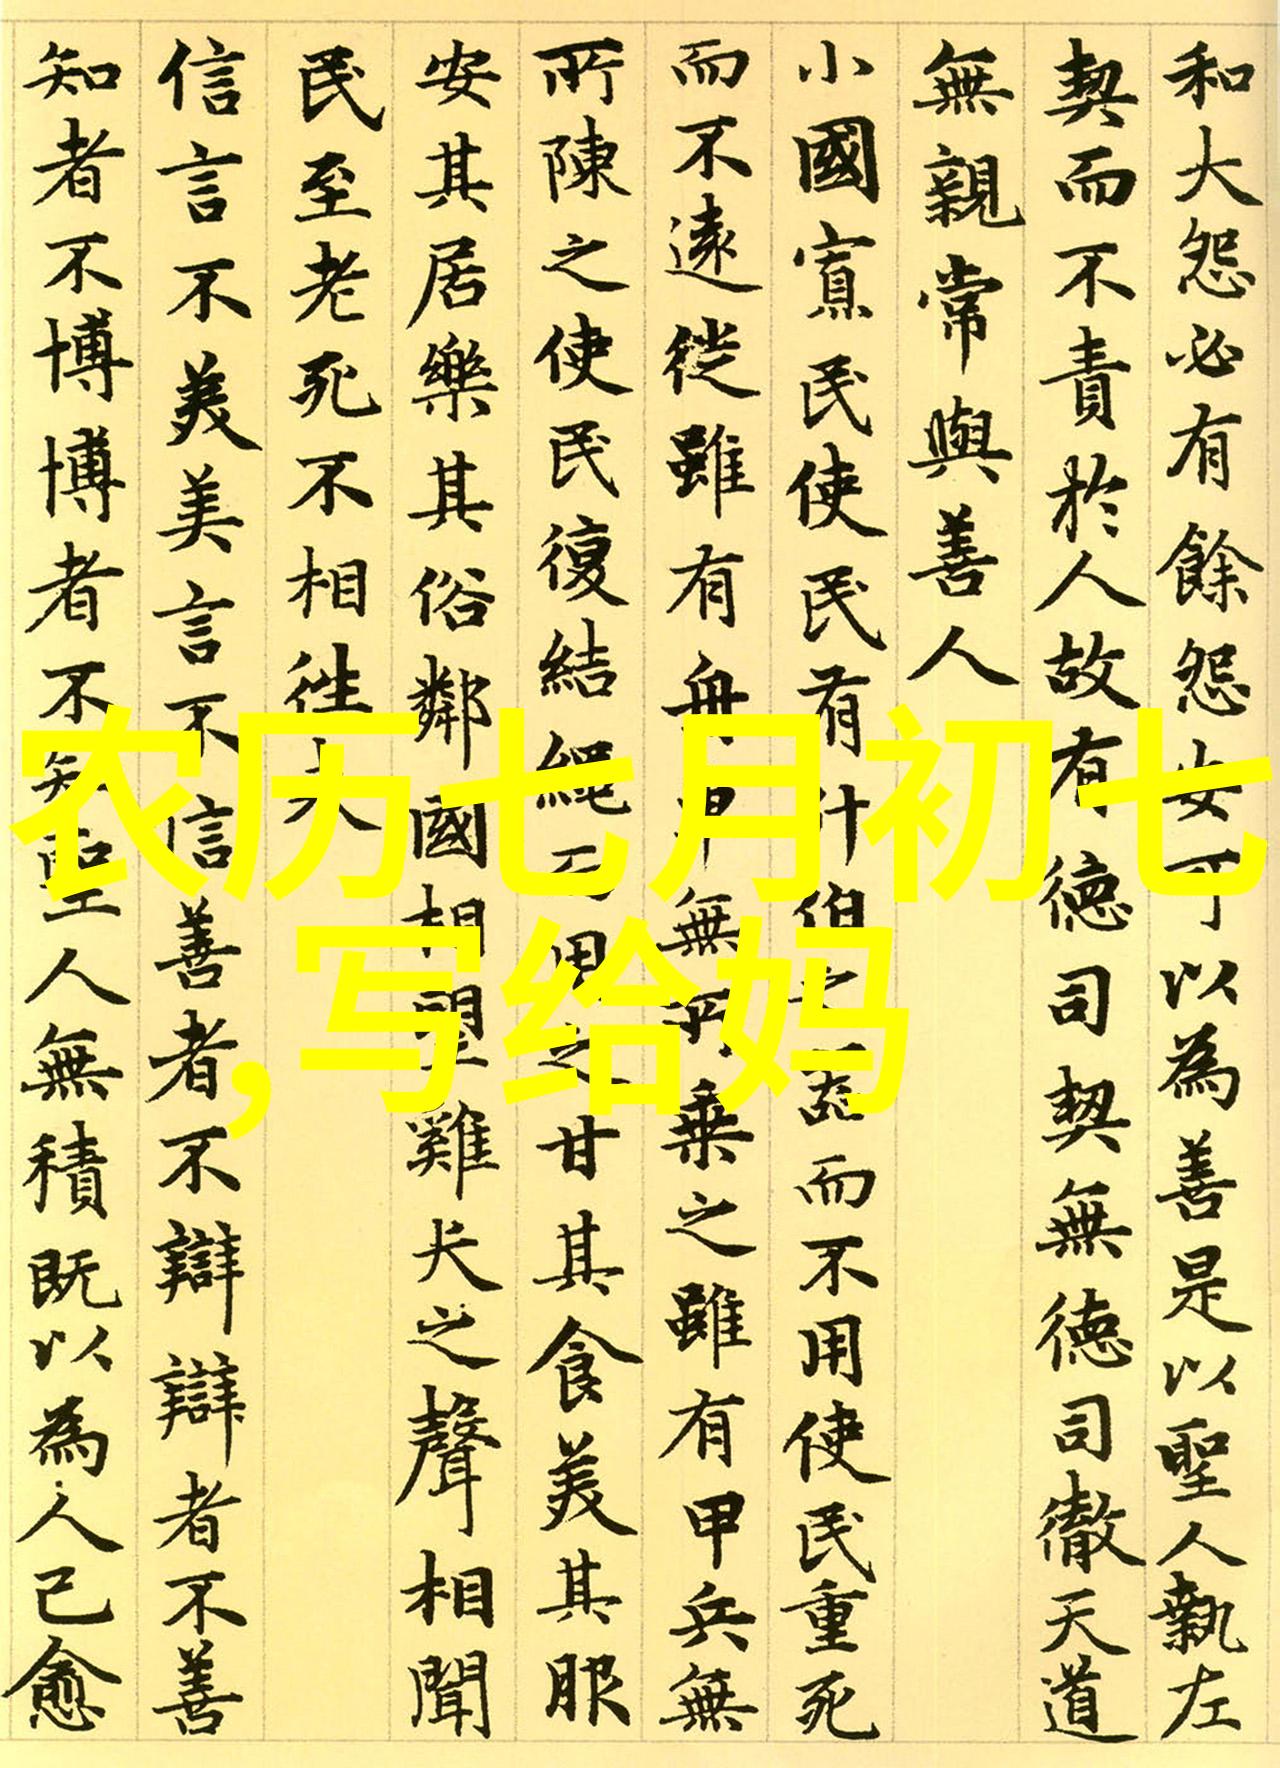 和大怨必有餘怨安可以為善是以聖人執左
契而不責於人故有德司契無德司徹天道
無親常與善人
小國寡民使民有什伯之器而不用使民重死
而不遠徙雖有舟車無所乗之雖有甲兵無
所陳之使民復結繩而用之甘其食美其服
安其居樂其俗鄰國相望雞犬之聲相聞
民至老死不相往来
信言不美美言不信善者不辯辯者不善
知者不博博者不知聖人無積既以為人己愈
农历七月初七
,写给妈